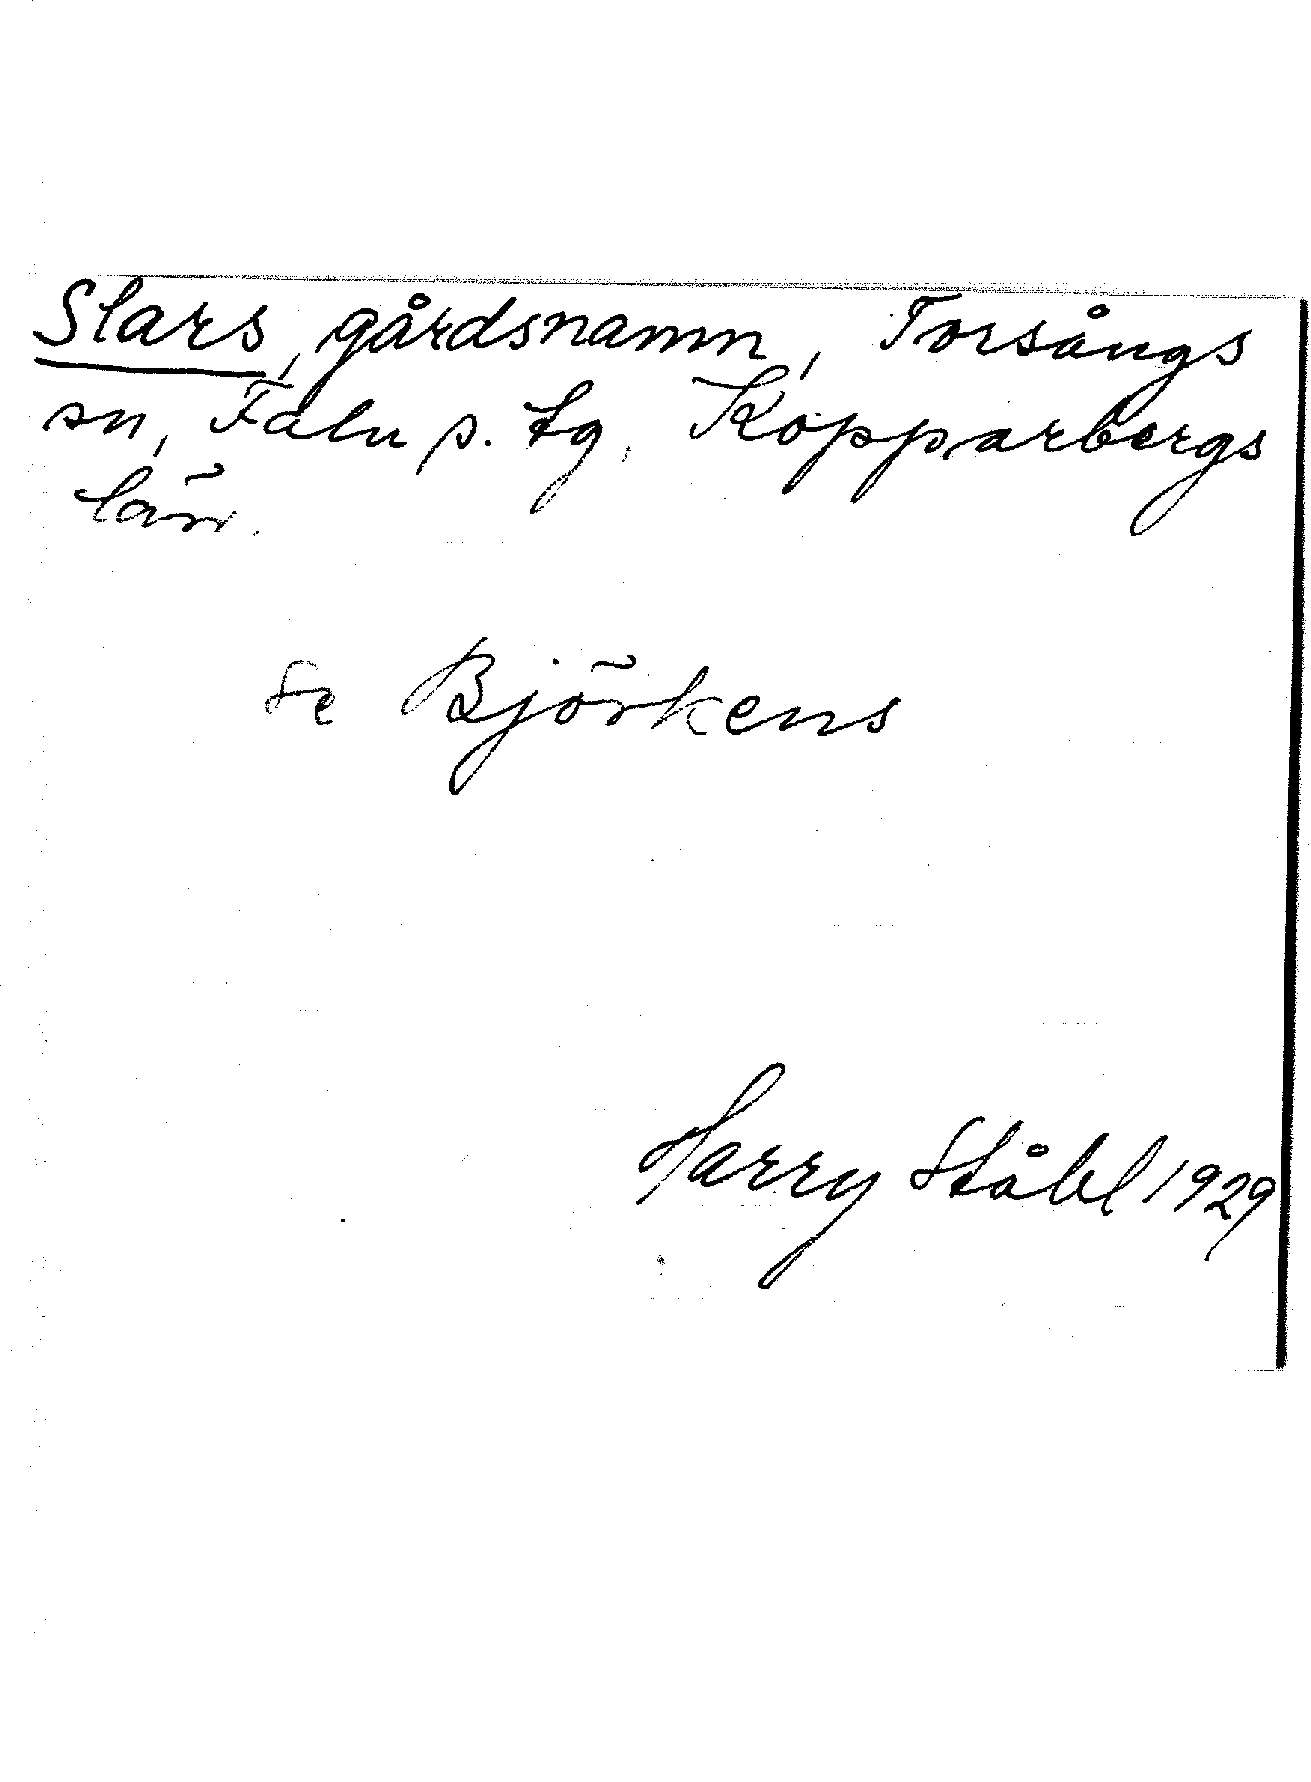 Slars, gårdsnamn, Torsångs
sn, Falu s. tg, Kopparbergs
län.
Se Björkens
Harry Ståhl 1929